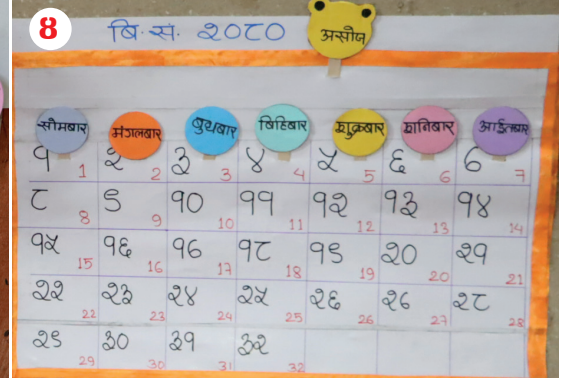 8
बि. सं. २०८०
असोज
सोमबार मंगलबार बुधबार बिहिबार शुक्रबार शनिबार आईतबार
१ 1 २ 2 ३ 3 ४ 4 ५ 5 ६ 6 ७ 7
८ 8 ९ 9 १० 10 ११ 11 १२ 12 १३ 13 १४ 14
१५ 15 १६ 16 १७ 17 १८ 18 १९ 19 २० 20 २१ 21
२२ 22 २३ 23 २४ 24 २५ 25 २६ 26 २७ 27 २८ 28
२९ 29 ३० 30 ३१ 31 ३२ 32